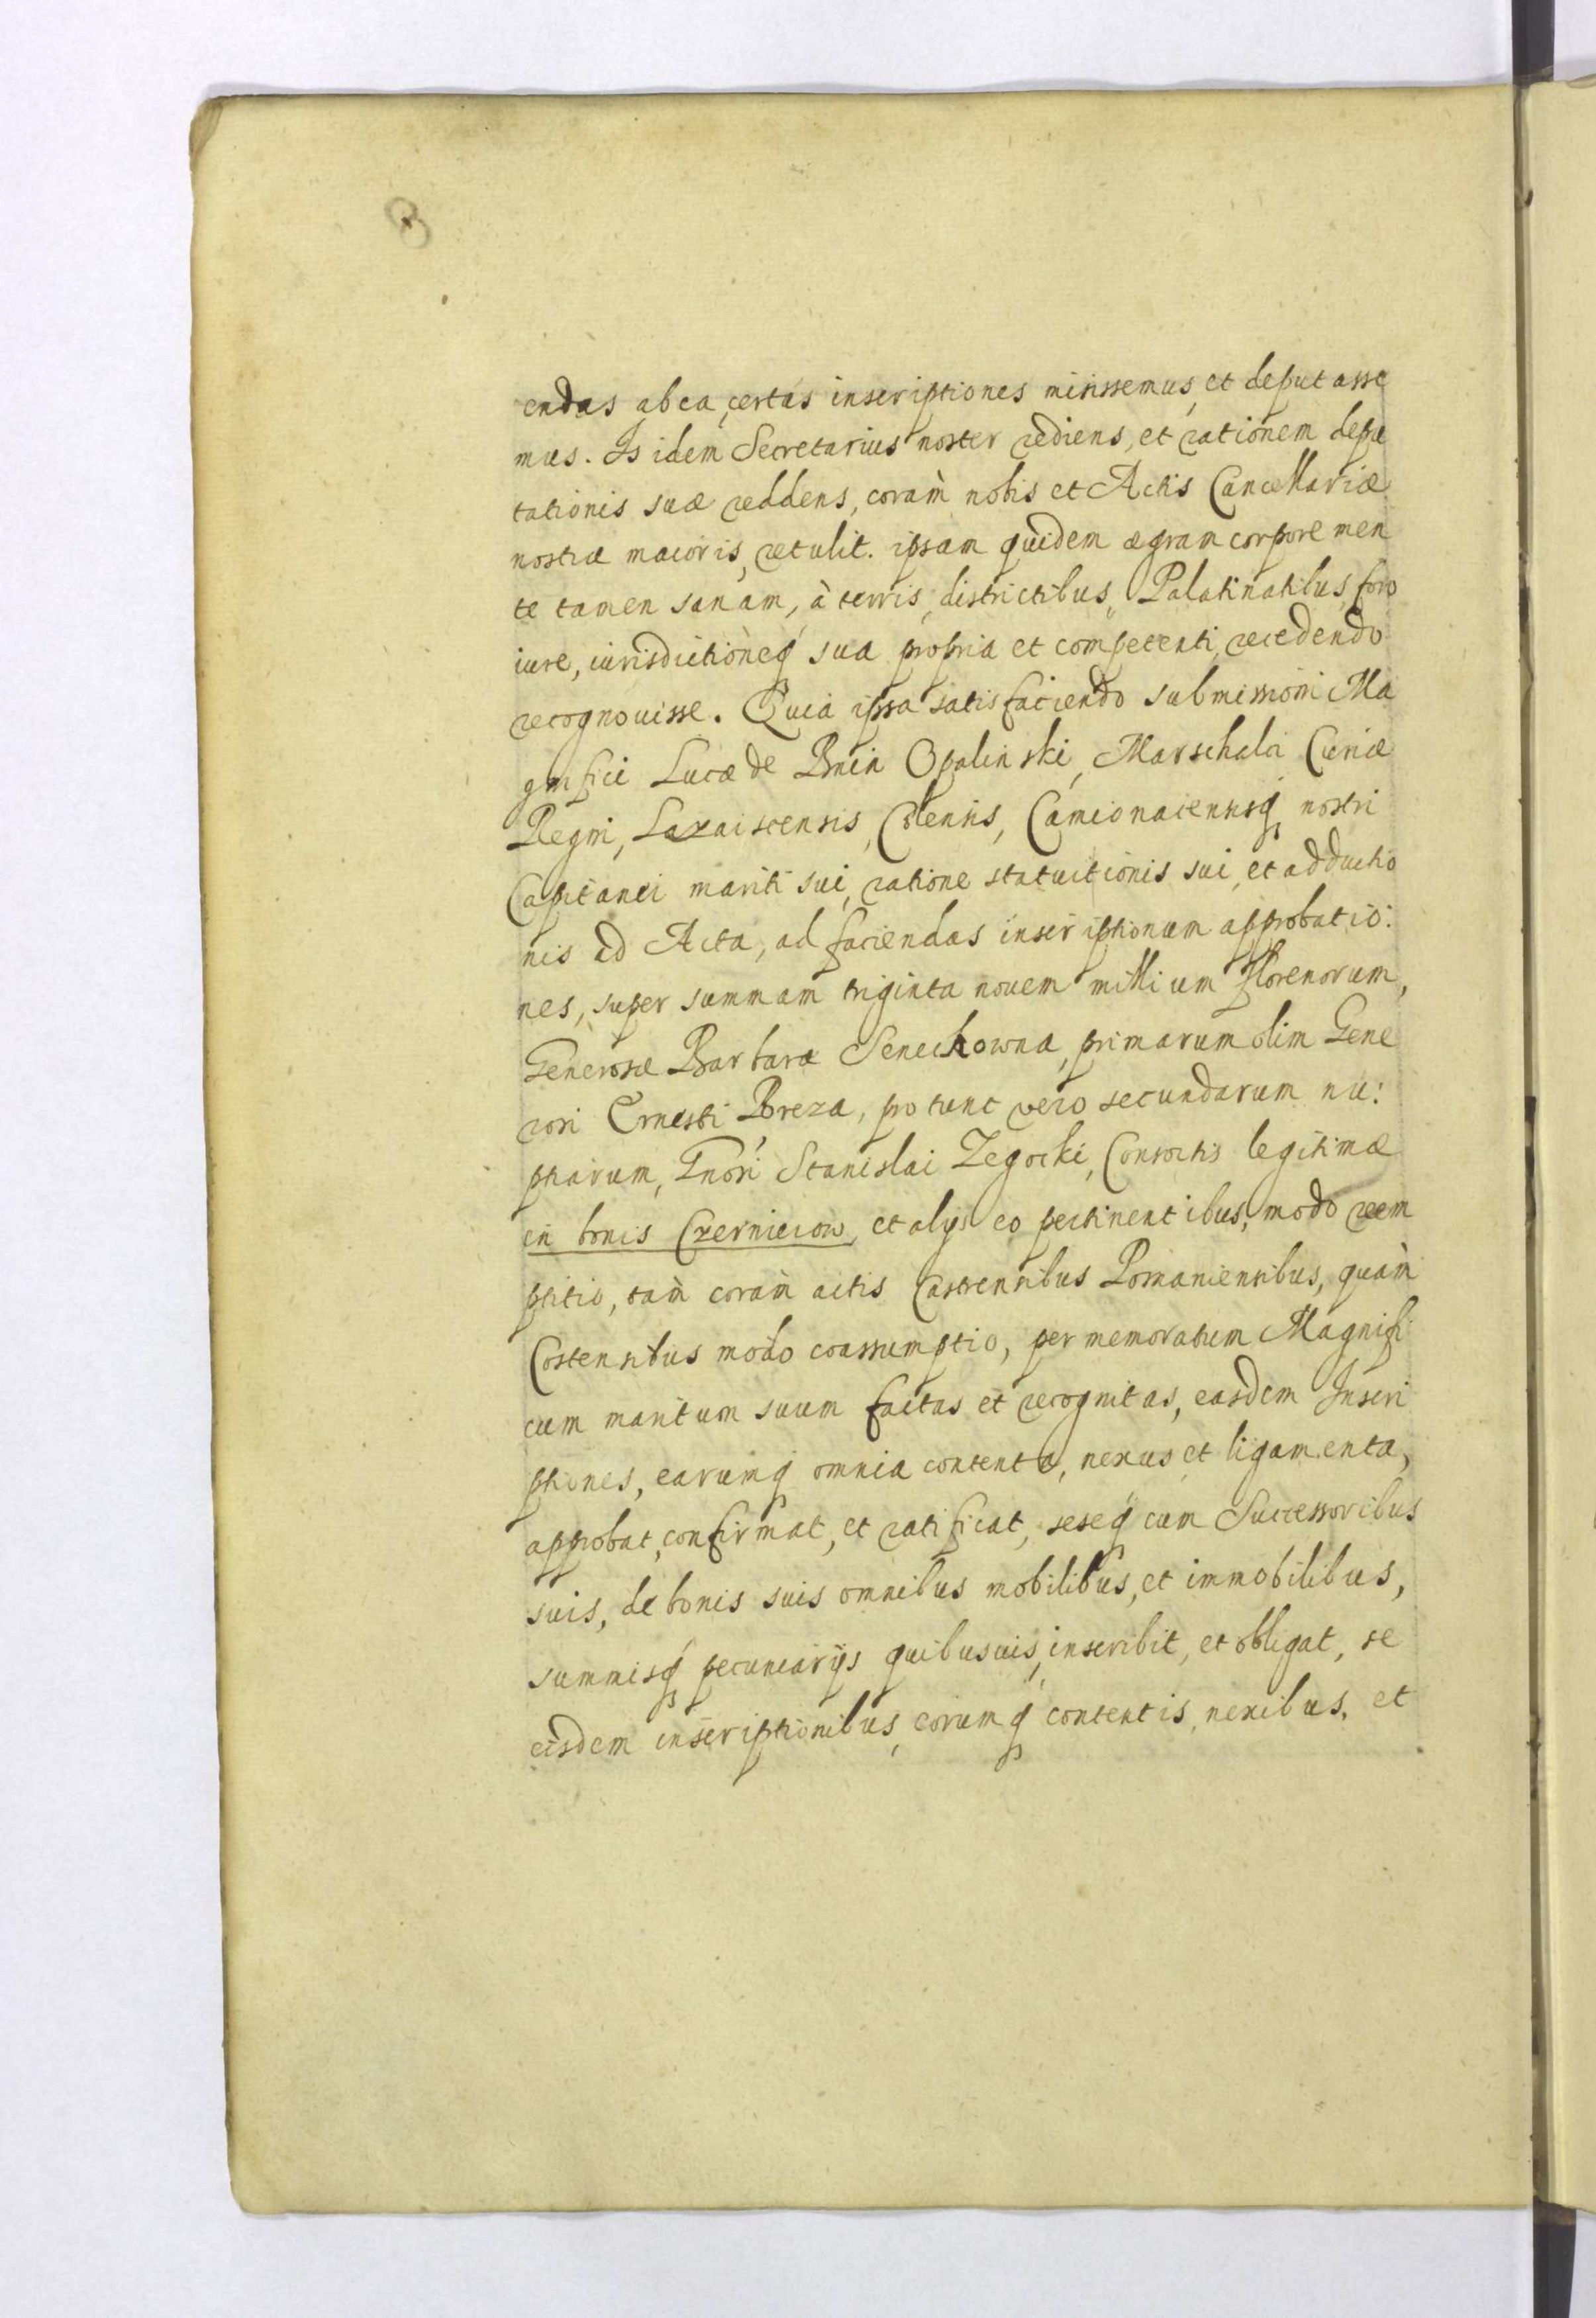 endas ab ea, certas inscriptiones misissemus, et deputasse
mus. Is idem Secretarius noster rediens, et rationem depu
tationis suæ reddens, coram̀ nobis et Actis Cancellariæ
nostræ maioris, retulit. ipsam quidem ægram corpore men
te tamen sanam, à terris, districtibus, Palatinatibus, foro
iure, iurisdictioneq́ sua propria et competenti, recedendo
recognouisse. Quia ipsa satisfaciendo submissioni Ma
gnifici Lucæ de Bnin Opalinski, Marschalci Curiæ
Regni, Laxaiscensis, Colensis, Camionacensisq́ nostri
Capitanei mariti sui, ratione statuitionis sui, et adductio
nis ad Acta, ad faciendas inscriptionum approbatio:
nes, super summam triginta nouem millium florenorum,
Generosæ Barbaræ Sieneckowna, primarum olim Gene
rosi Ernesti Breza, pro tunc vero secundarum nu:
ptiarum, Gnosi Stanislai Zegocki, Consortis legitimæ
in bonis Czerniecow, et alijs eo pertinentibus, modo reem
ptitio, tam̀ coram̀ actis Castrensibus Posnaniensibus, quam̀
Costensibus modo coassumptio, per memoratum Magnifi
cum maritum suum factas et recognitas, easdem Inscri
ptiones, earumq́ omnia contenta, nexus et ligamenta,
approbat, confirmat, et ratificat, seseq́ cum Successoribus
suis, de bonis suis omnibus mobilibus, et immobilibus,
summisq́ pecuniarijs quibusuis, inscribit, et obligat, se
eisdem inscriptionibus, eorumq́ contentis, nexibus, et